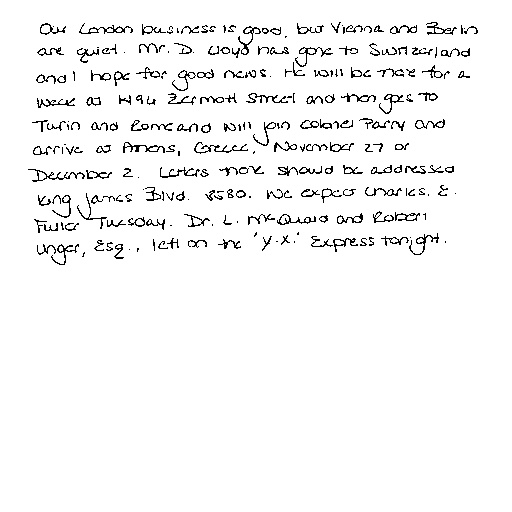 Our London business is good, but Vienna and Berlin
are quiet. Mr. D. Lloyd has gone to Switzerland
and I hope for good news. He will be there for a
week at 1496 Zermott Street and then goes to
Turin and Rome and will join Colonel Parry and
arrive at Athens, Greece, November 27 or
December 2. Letters there should be addressed
King James Blvd. 8580. We expect Charles. E.
Fuller Tuesday. Dr. L. McQuaid and Robert
Unger, Esq., left on the 'Y.X.' Express tonight.